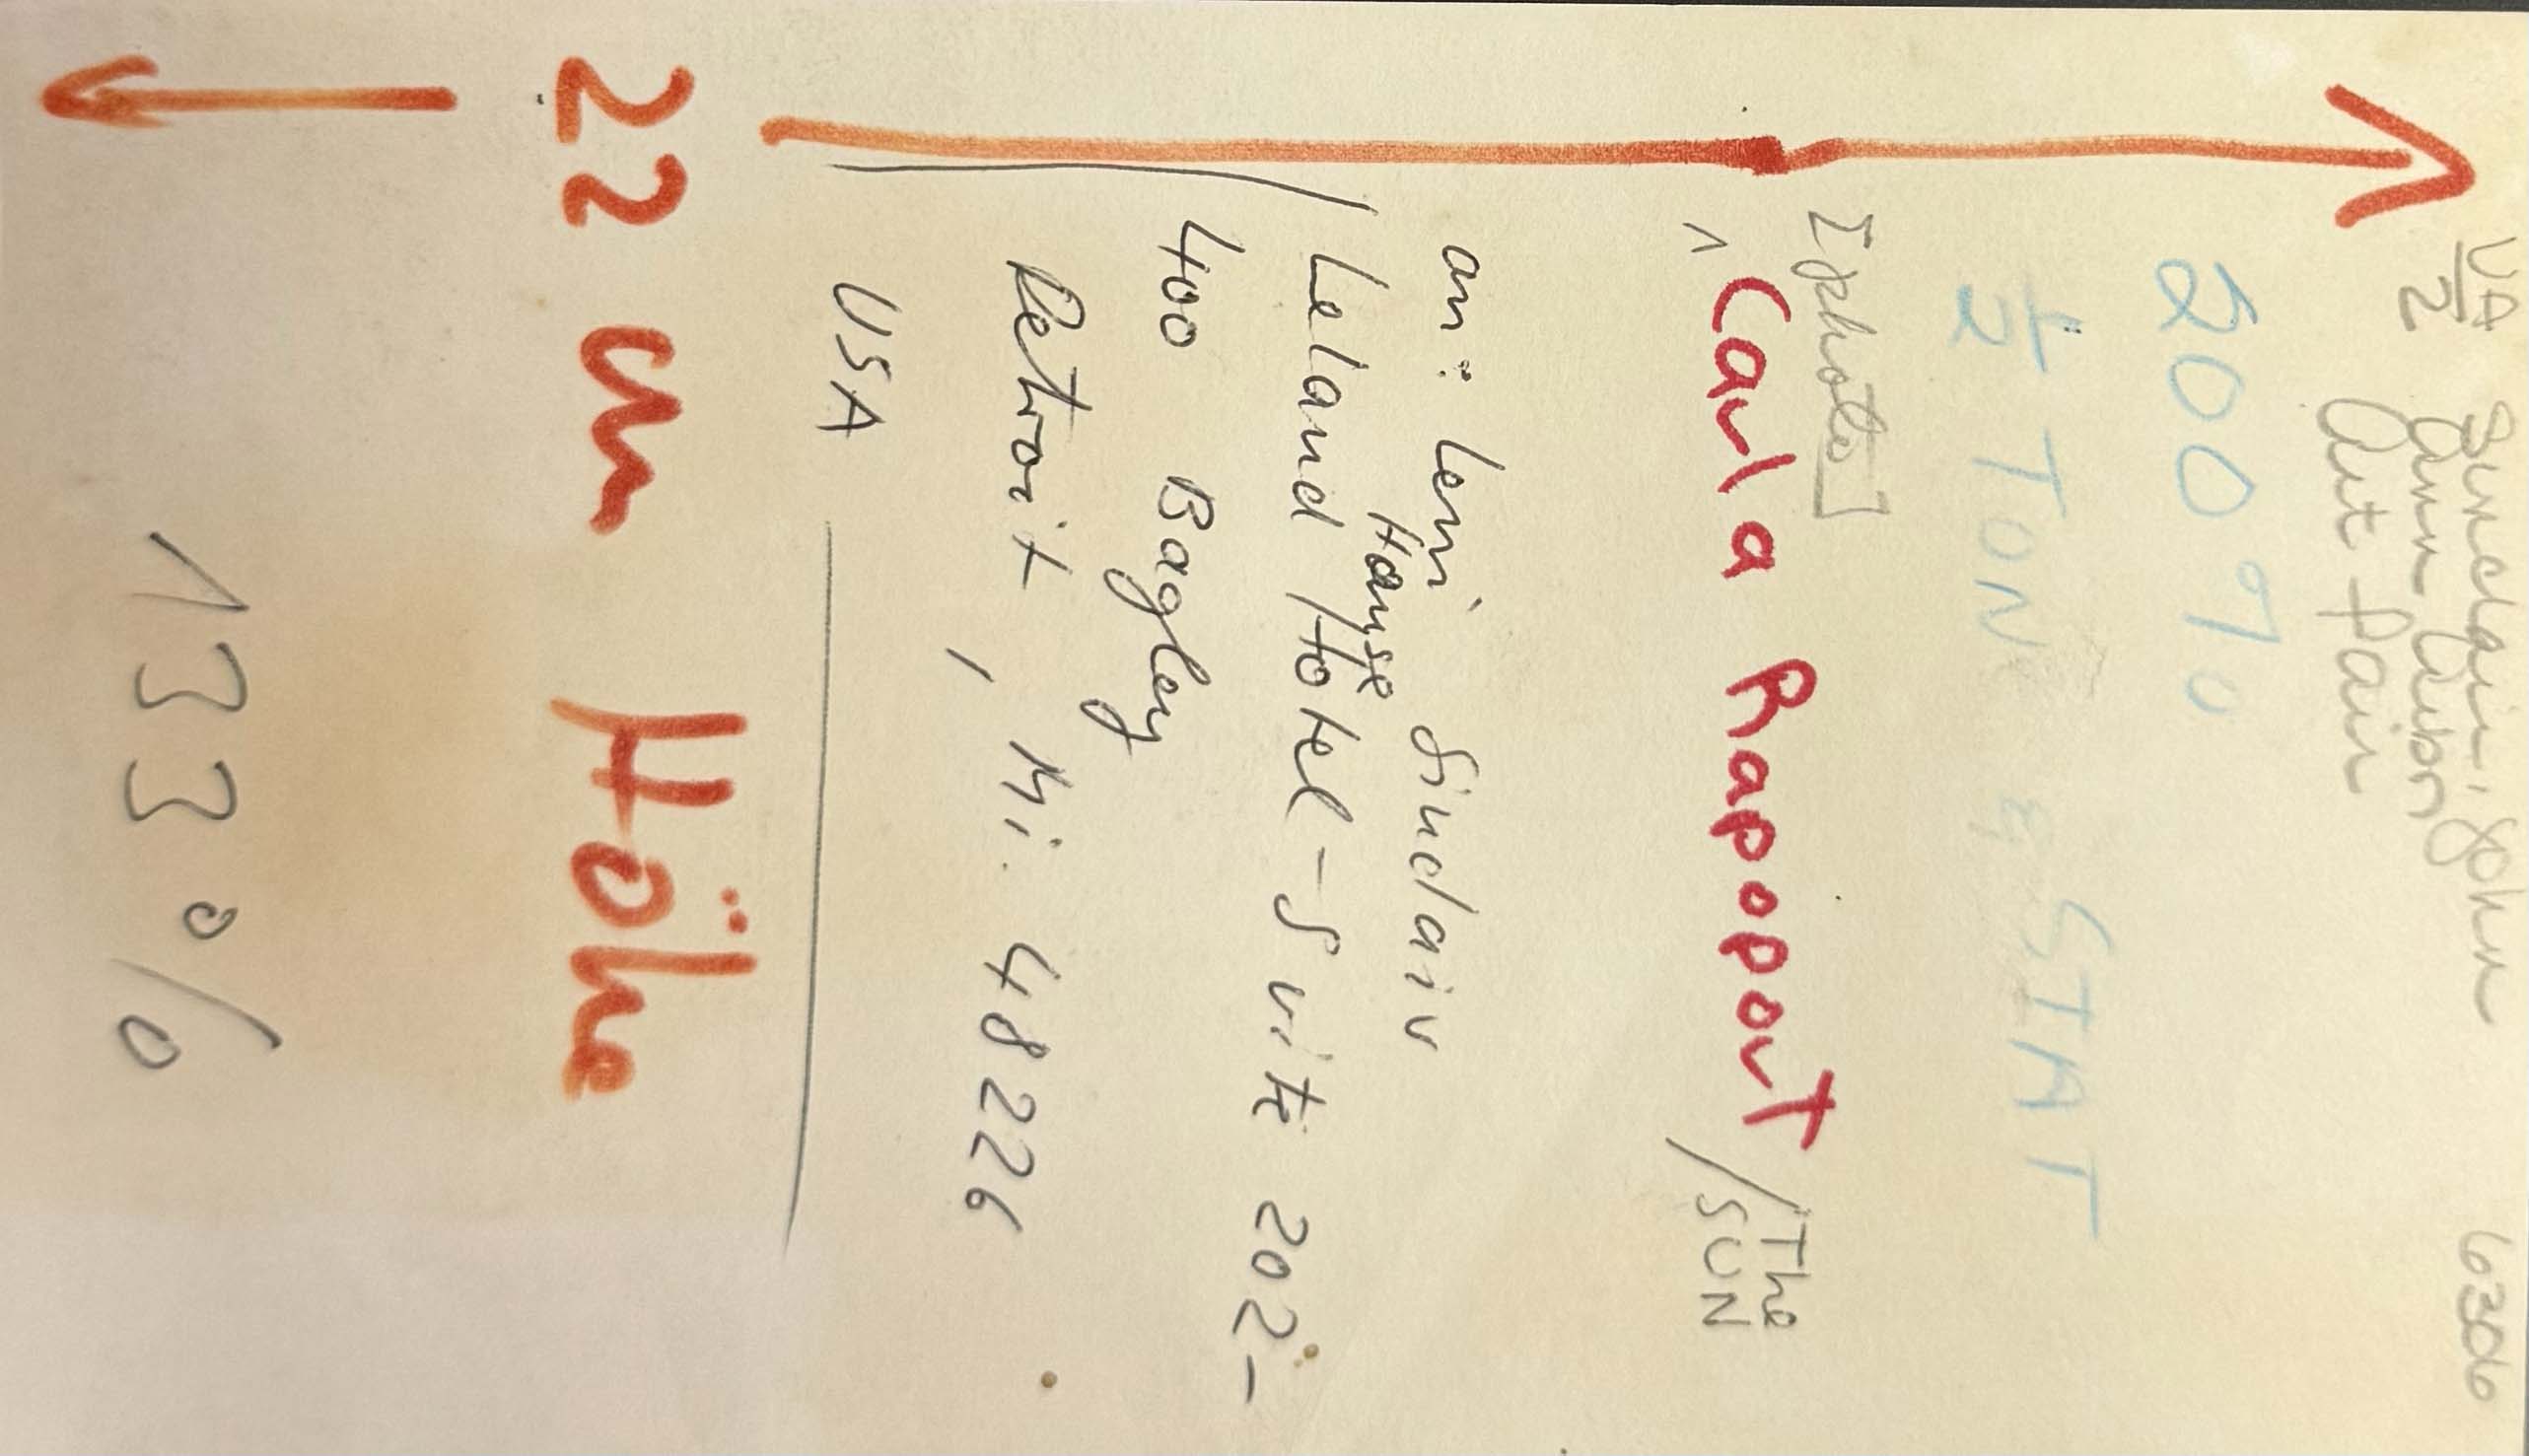 UA/2 Sinclair, John 6306
Ann Arbor
Aut Pair
200%
1/2 TON & STAT
[photo]
^ Carla Rapoport / The SUN
an: Leni Sinclair
House
Leland Hotel - Suite 202 -
400 Bagley
Detroit, Mi. 48226
USA
22 m Höhe
133%